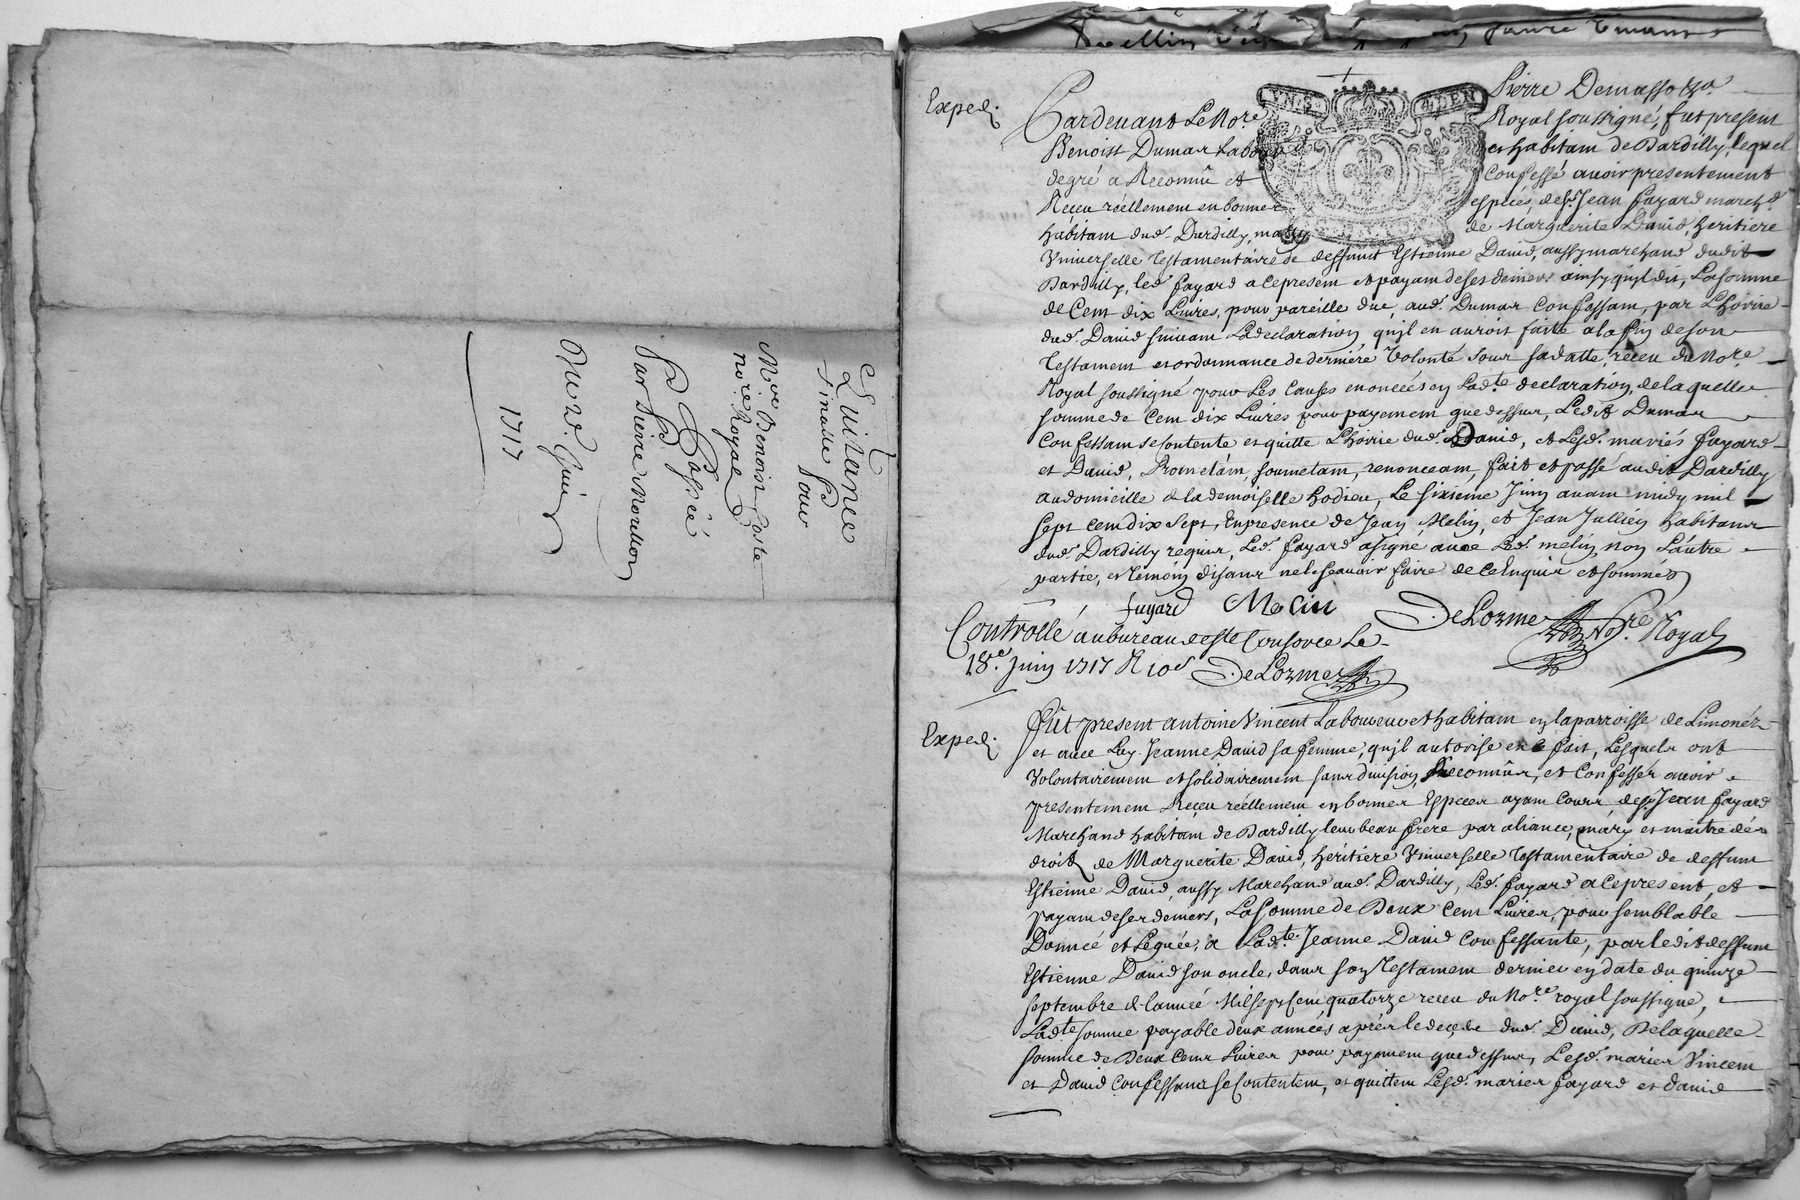 Quittance
finalle Pour
Mre Benoist Coste
no.re Royal
Passée
Par Pierre Mouillon
Du 28. Juin
1717
Exped.
Pierre Demasso &a
Pardevant Le No.re Royal soussigné, fut present
Benoist Dumas Labour et habitant de Dardilly, lequel
degré a Reconnû et Confessé avoir presentement
Receu réellement en bonnes espéces, de Sr. Jean fayard march.d
habitant dud. Dardilly, mary de Marguerite David, heritiere
Universelle Testamentaire de deffunt Estienne David, aussy marchand dudit
Dardilly, led. fayard acepresent et payant de ses deniers ainsy qu'il dit, La somme
de Cent dix Livres, pour pareille due, aud. Dumas Confessant, par L'hoirie
dud. David suivant La declaration qu'il en auroit faite a la fin de son
Testament et ordonnance de derniere Volonté sous sa datte, receu du No.re
Royal soussigné pour Les Causes enoncées en Lad.te declaration, de laquelle
somme de Cent dix Livres pour payement que dessus, Ledit Dumas
Confessant se contente et quitte L'hoirie dud. David, et Lesd. mariés fayard
et David, Prometant, soumetant, renonceant, fait et passé audit Dardilly
au domicille de la demoiselle hodieu, Le sixieme Juin avant midy mil
sept cent dix sept, En presence de Jean Melin, et Jean Jullien habitans
dud. Dardilly requis, Led. fayard a signé avec Led. melin, non L'autre
partie, et témoin disans ne le sçavoir faire de ce Enquis et sommés
fayard Melin DeLorme No.re Royal
Controllé au bureau de St Consorce Le
18.e Juin 1717 R 10s DeLorme
Exped.
Fût present antoine Vincent Laboureur et habitant en la parroisse de Limonés
et avec Luy Jeanne David sa femme, qu'il autorise en ce fait, Lesquels ont
Volontairement et solidairement sans division, Reconnûs, et Confessés avoir
presentement Reçeu réellement en bonnes Especes ayant Cours de Sr. Jean fayard
Marchand habitant de Dardilly leur beau frere par aliance, mary et maitre dés
droits de Marguerite David, héritiere Universelle Testamentaire de deffunt
Estienne David, aussy Marchand aud. Dardilly, Led. fayard acepresent, et
payant de ses déniers, La somme de Deux Cent Livres, pour semblable
Donnée et Leguée, a Lad.te Jeanne David Confessante, par ledit deffunt
Estienne David son oncle, dans son Testament dernier en date du quinze
septembre de l'année Mil sept Cent quatorze receu du No.re royal soussigné,
Lad.te somme payable deux années aprés le deçede dud. David, De laquelle
somme de Deux Cens Livres pour payement que dessus, Lesd. mariés Vincent
et David Confessans se Contentent, et quittent Lesd. mariés fayard et David